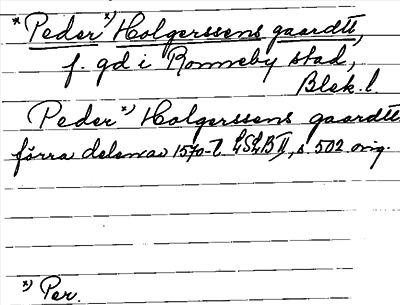 * Peder *) Holgerssens gaardtt,
f. gd i Ronneby stad,
Blek. l.
Peder *) Holgerssens gaardtt
förra delen av 1570-t. LSLB II, s. 502 orig.
*) Per.